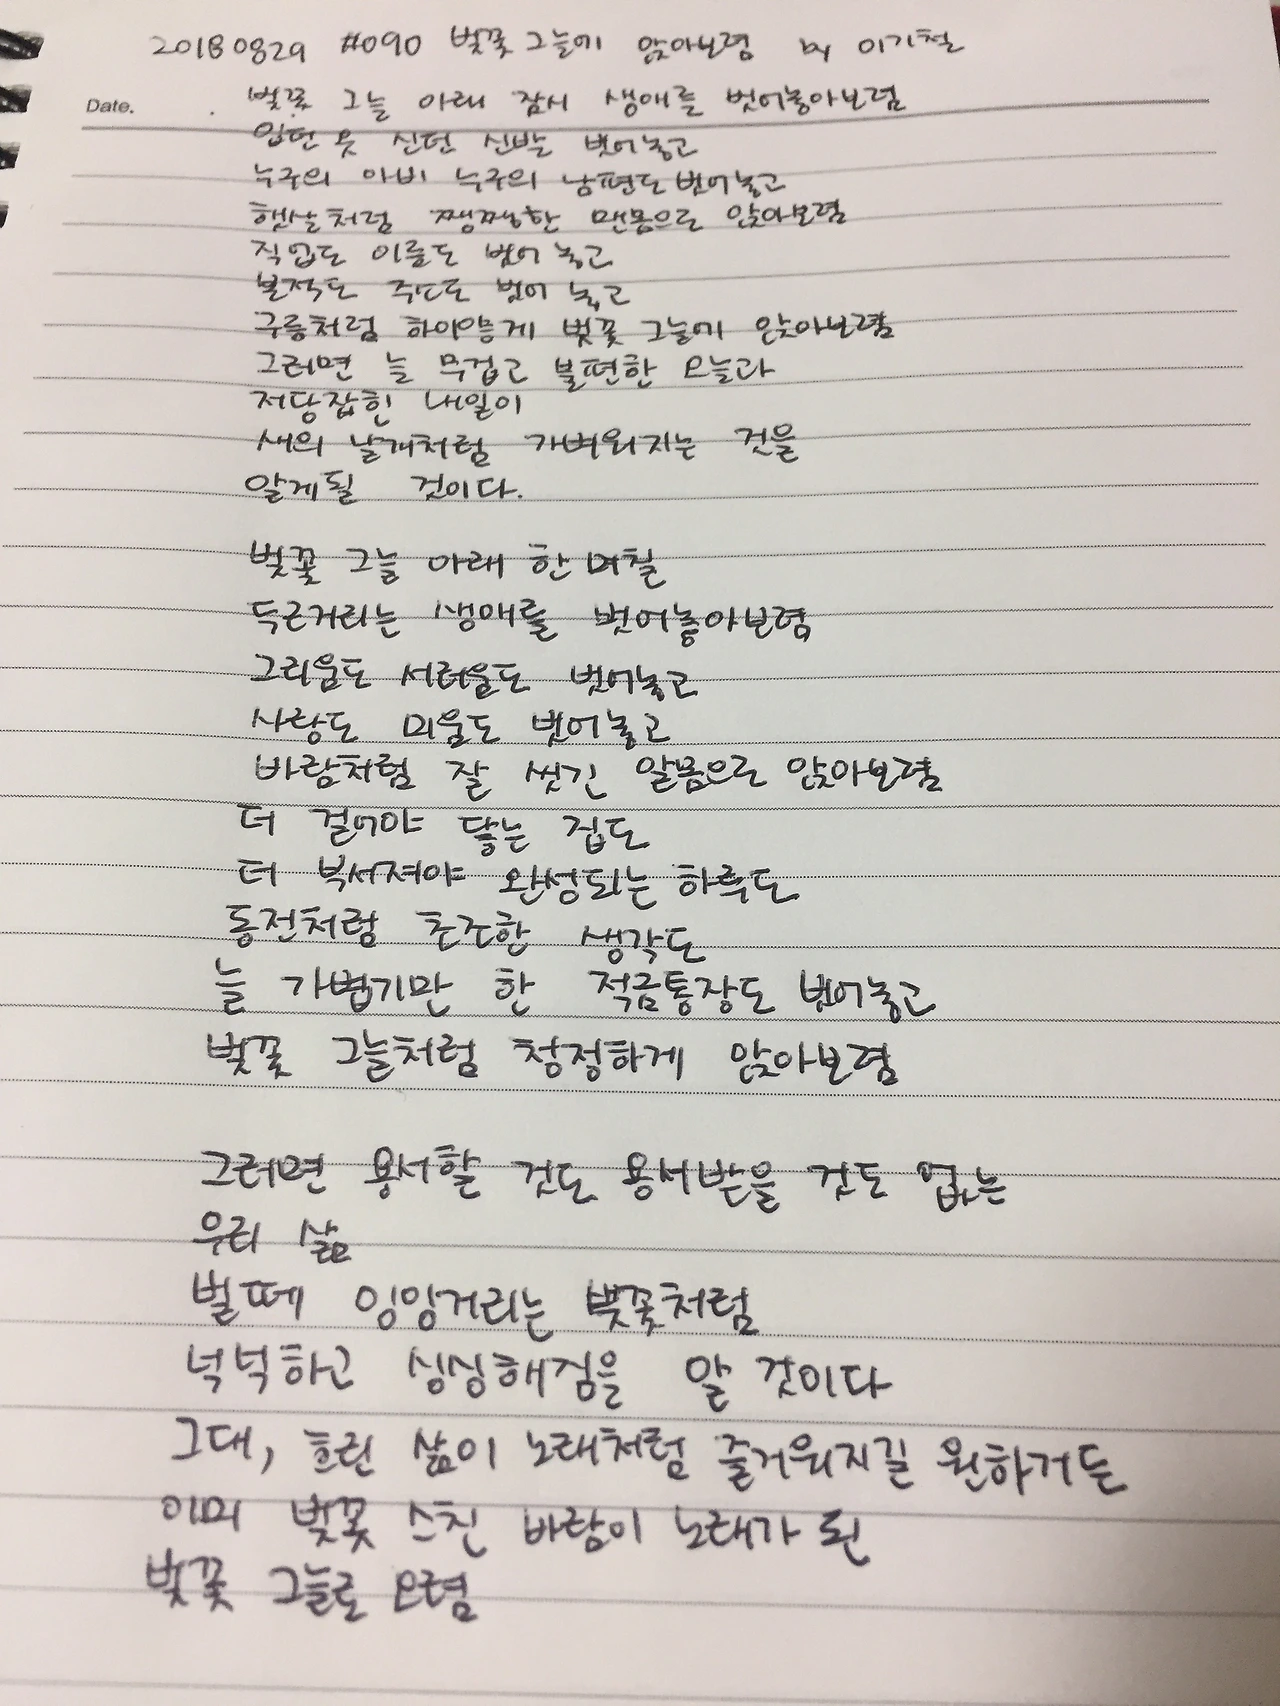 20180829 #090 벚꽃 그늘에 앉아보렴 by 이기철
Date. . 벚꽃 그늘 아래 잠시 생애를 벗어놓아보렴
입던 옷 신던 신발 벗어놓고
누구의 아비 누구의 남편도 벗어놓고
햇살처럼 쨍쨍한 맨몸으로 앉아보렴
직업도 이름도 벗어 놓고
본적도 주소도 벗어 놓고
구름처럼 하이얗게 벚꽃 그늘에 앉아보렴
그러면 늘 무겁고 불편한 오늘과
저당잡힌 내일이
새의 날개처럼 가벼워지는 것을
알게될 것이다.
벚꽃 그늘 아래 한 며칠
두근거리는 생애를 벗어놓아보렴
그리움도 서러움도 벗어놓고
사랑도 미움도 벗어놓고
바람처럼 잘 씻긴 알몸으로 앉아보렴
더 걸어야 닿는 집도
더 부서져야 완성되는 하루도
동전처럼 초조한 생각도
늘 가볍기만 한 적금통장도 벗어놓고
벚꽃 그늘처럼 청정하게 앉아보렴
그러면 용서할 것도 용서받을 것도 없는
우리 삶
벌떼 잉잉거리는 벚꽃처럼
넉넉하고 싱싱해짐을 알 것이다
그대, 흐린 삶이 노래처럼 즐거워지길 원하거든
이미 벚꽃 스친 바람이 노래가 된
벚꽃 그늘로 오렴